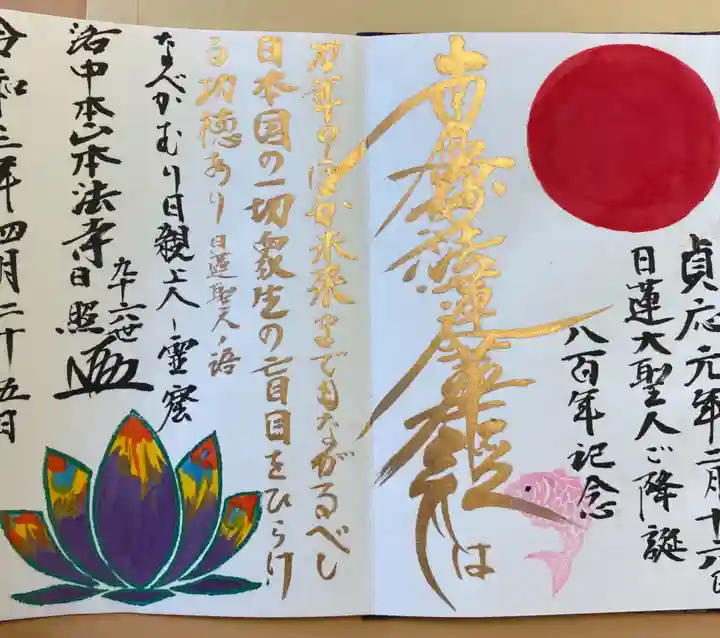 貞応元年二月十六日
日蓮大聖人ご降誕
八百年記念
南無妙法蓮華経は
万年のほか未来までもながるべし
日本国の一切衆生の盲目をひらけ
る功徳あり 日蓮聖人ノ語
なべかむり日親上人ノ霊窟
洛中本山本法寺
九十六世
日照
令和三年四月二十五日